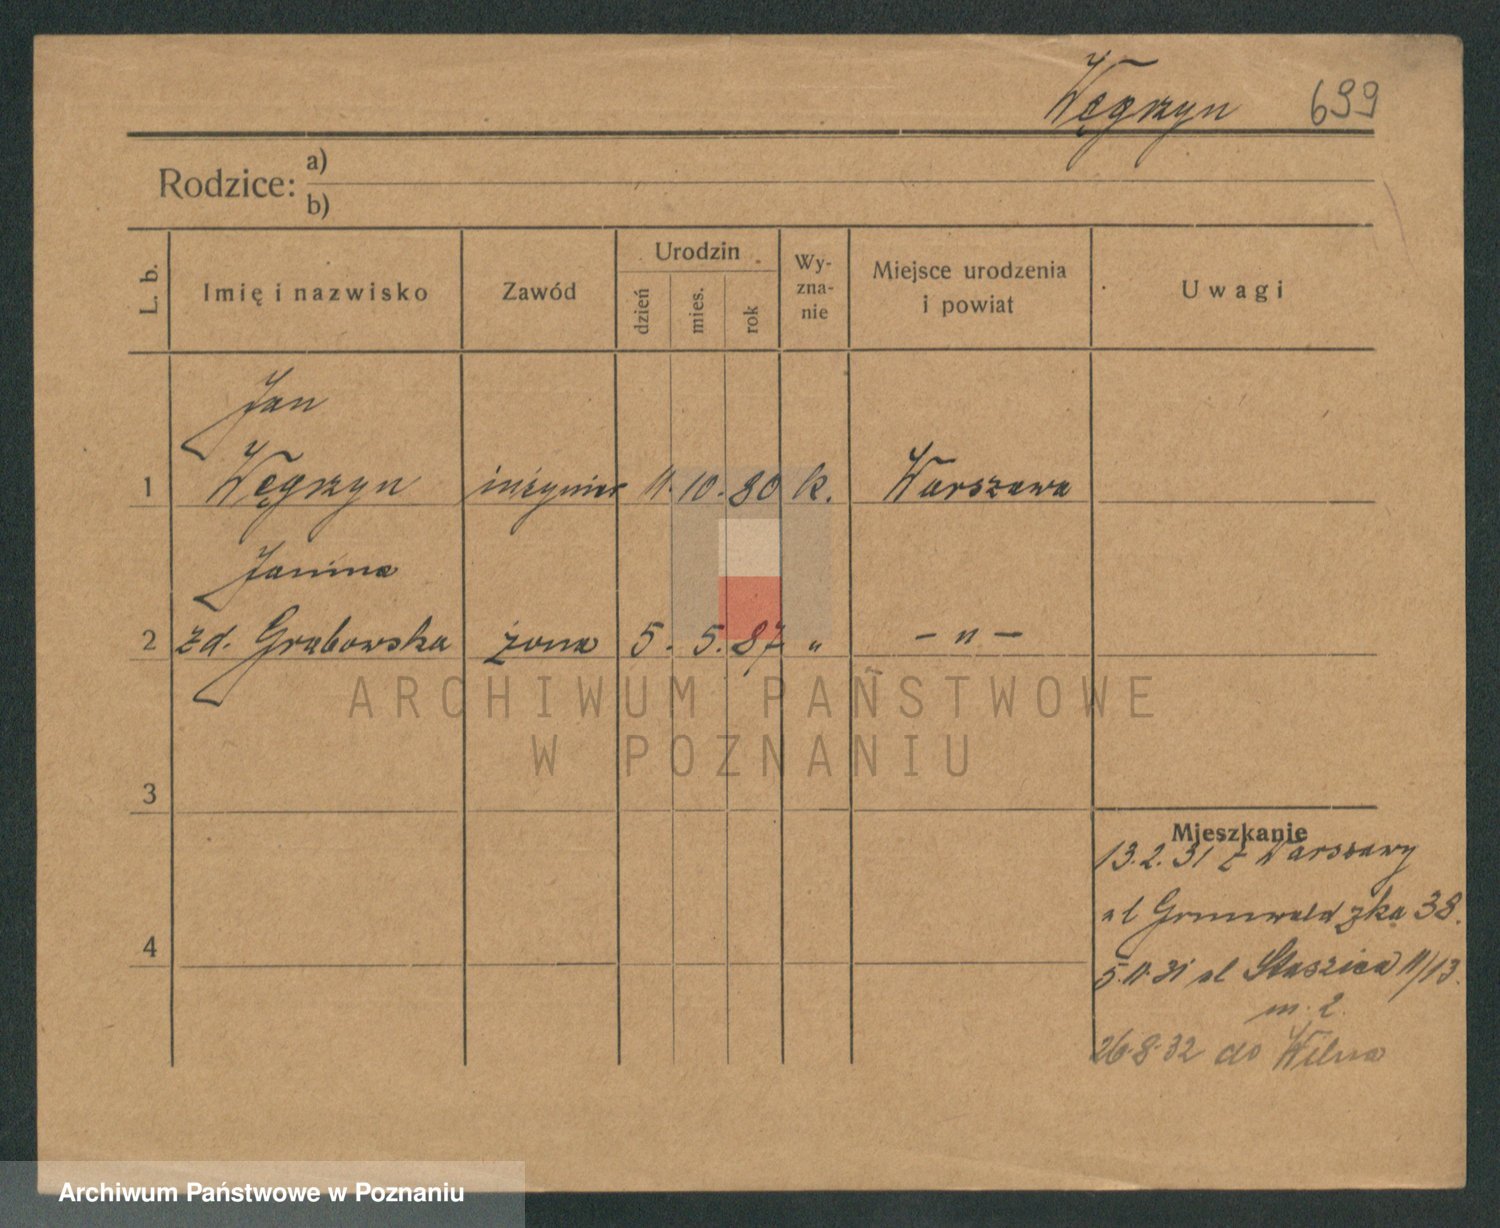 Węgrzyn 699
Rodzice: a)
b)
L. b. Imię i nazwisko Zawód Urodzin dzień mies. rok Wy-zna-nie Miejsce urodzenia i powiat Uwagi
Jan
1 Węgrzyn inżynier 11. 10. 80 k. Warszawa
Janina
2 zd. Grabowska żona 5. 5. 87 " — " —
ARCHIWUM PAŃSTWOWE
W POZNANIU
3
Mieszkanie
13.2.31 z Warszawy
ul Grunwaldzka 38.
4
5.11.31 ul Staszica 11/13.
m. 2.
26.8.32 do Wilna
Archiwum Państwowe w Poznaniu